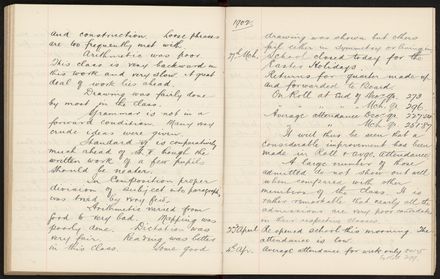 and construction. Loose phrases
are too frequently met with.
Arithmetic was poor.
This class is very backward in
this work and very slow. A great
deal of work lies ahead.
Drawing was fairly done
by most in the class.
Grammar is not in a
forward condition. Many very
crude ideas were given.
Standard V is comparatively
much ahead of St. V though the
written work of a few pupils
should be neater.
In Composition proper
division of subject into paragraphs
was tried by very few.
Arithmetic varied from
good to very bad. Mapping was
poorly done. Dictation was
very fair. Reading was better
in this class. Some good
1902
drawing was shown but others
fail either in symmetry or lining in
27th Mch. School closed today for the
Easter Holidays.
Returns for quarter made up
and forwarded to Board
On Roll at End of Dec. qr. 273
" " " " Mch. qr. 296
Average attendance Dec. qr.
" " Mch. qr.
It will thus be seen that a
considerable improvement has been
made in Roll & avge. attendance.
A large number of those
admitted do not show out well
when compared with other
members of the class. It is
rather remarkable that nearly all the
admissions are very poor
in their respective classes.
April Re opened school this morning. The
attendance is low.
4th Apr. Average attendance for week only